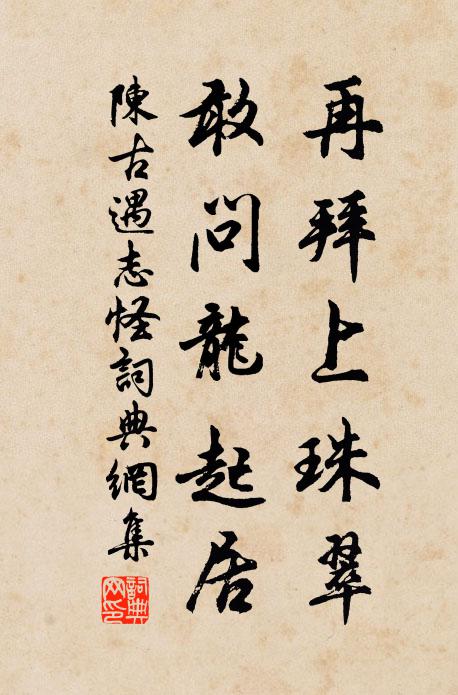 再拜上珠翠
敢問龍起居
陳古遇志怪詞典網集
詞典網印